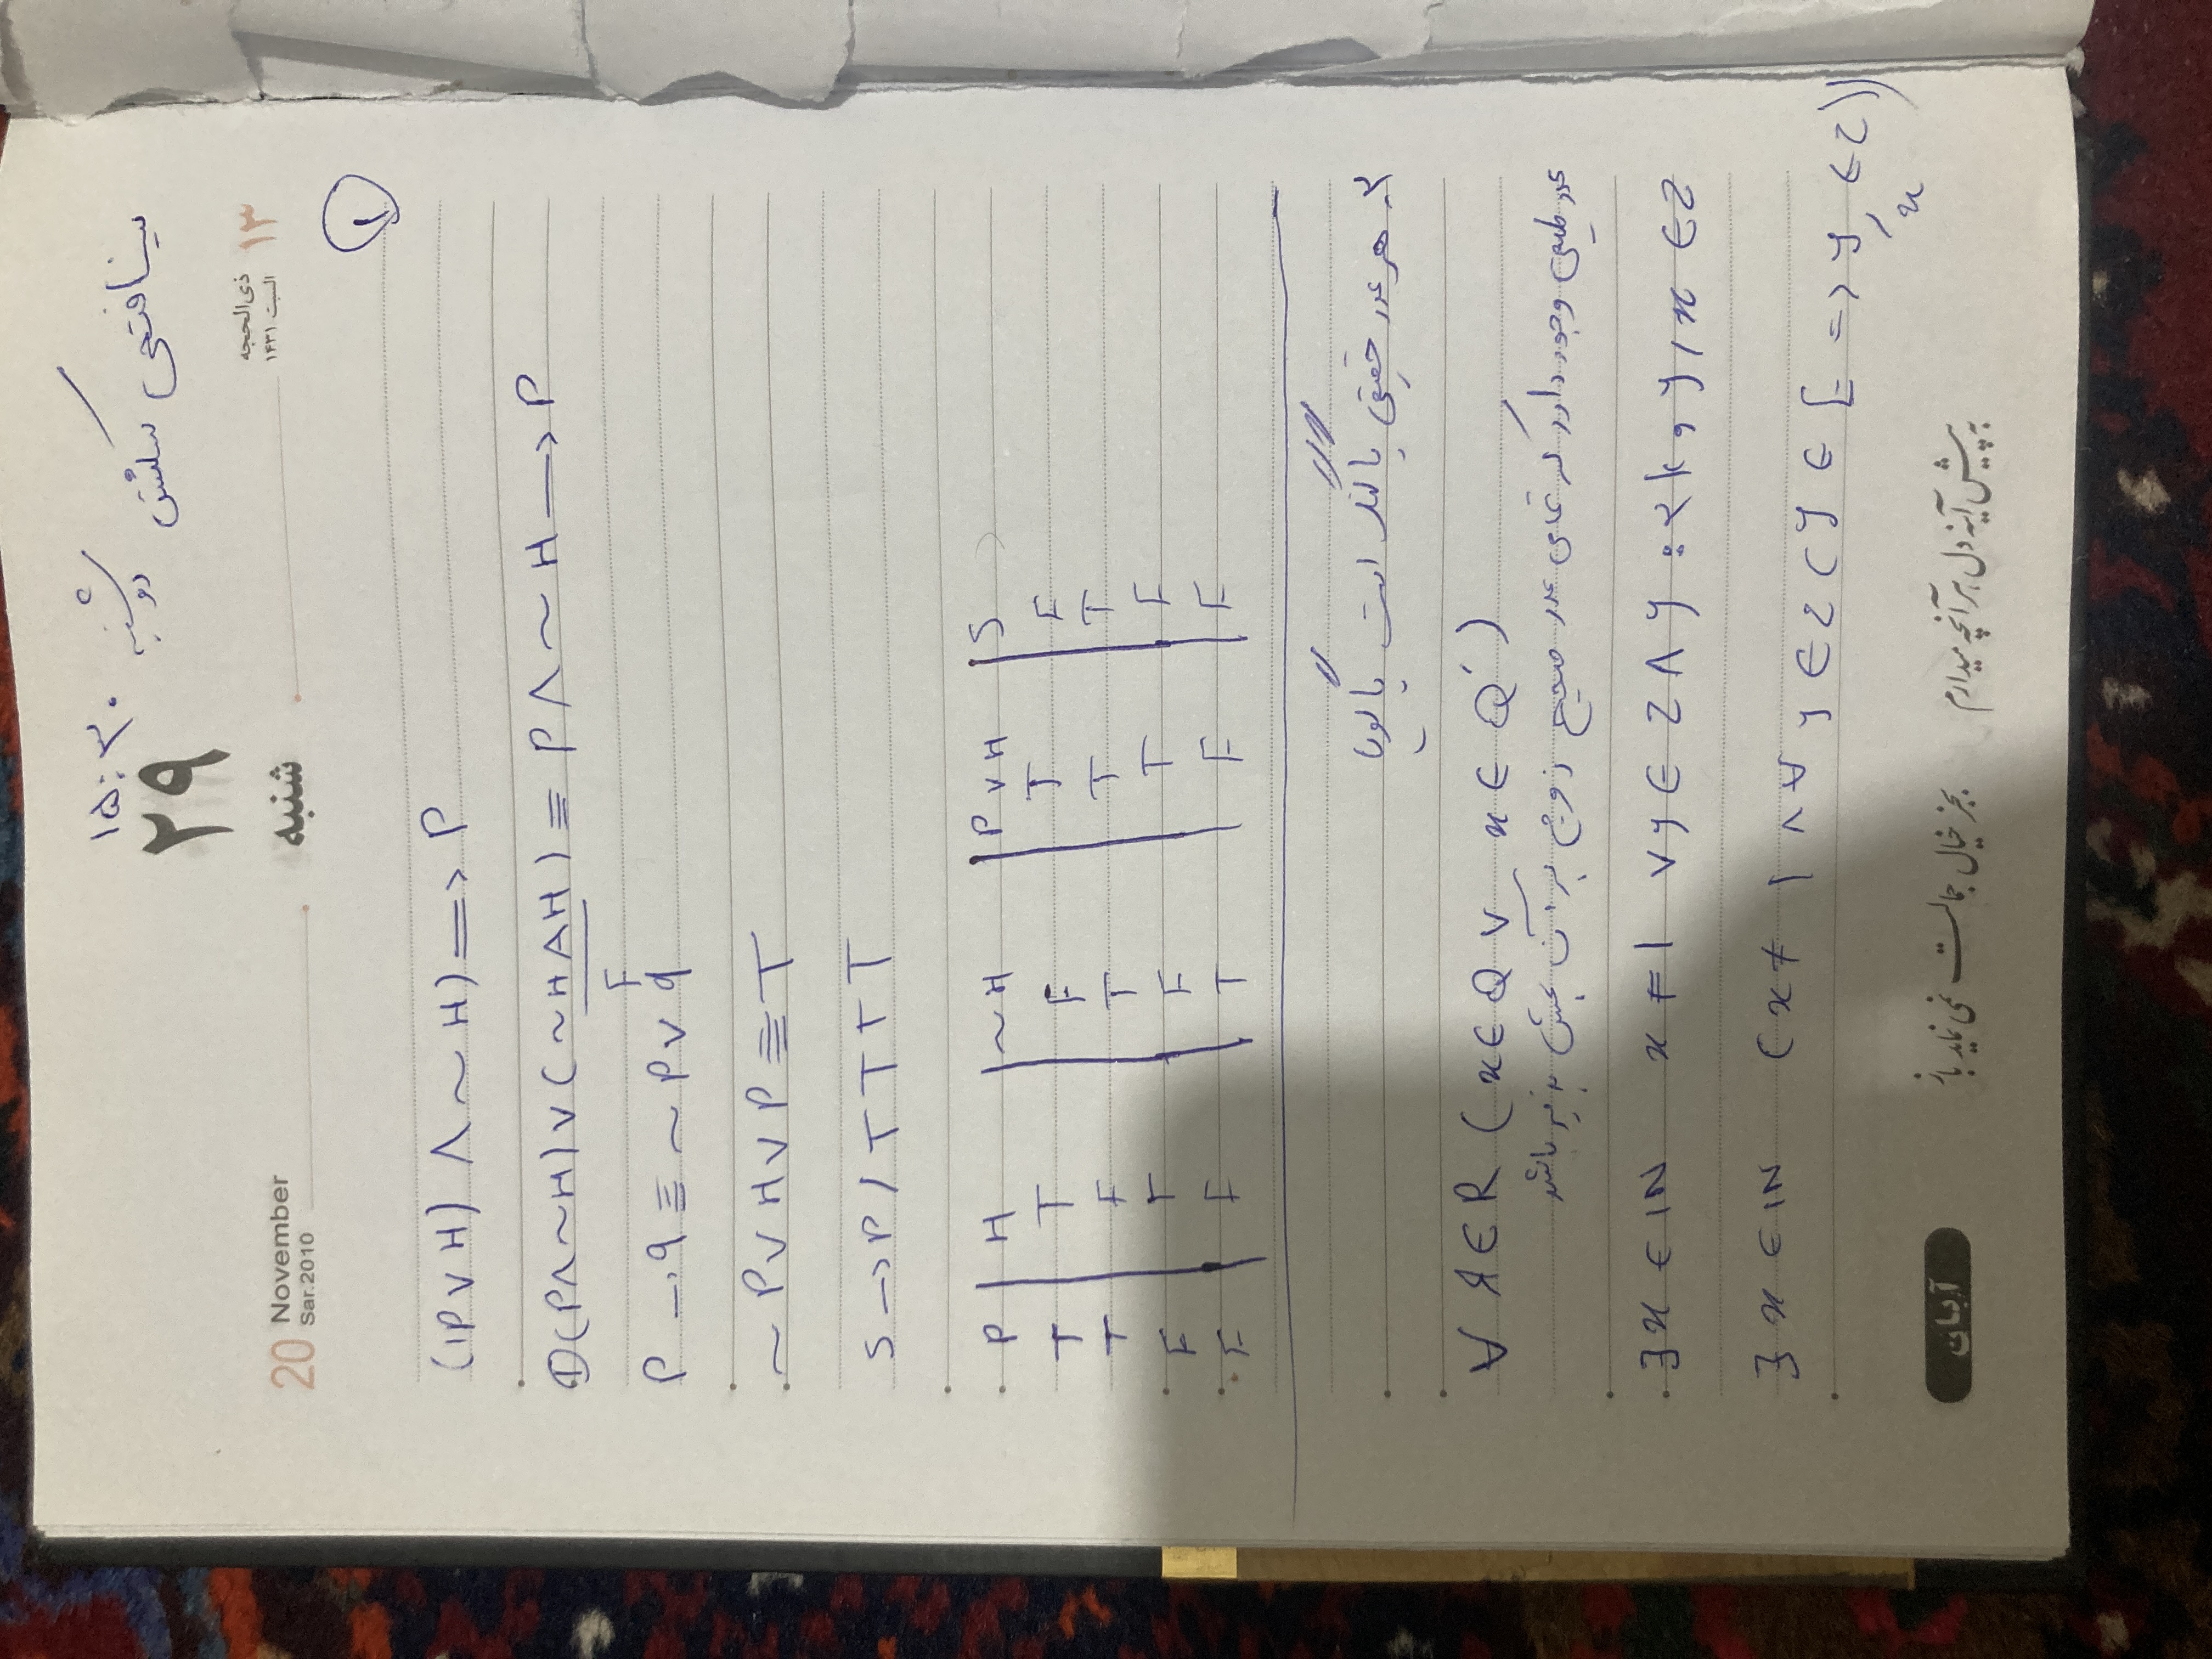 سینا فتحی سکشن دوشنبه ۱۵:۳۰
۲۹
20 November
Sar.2010
شنبه
۱۳ ذی‌الحجه
السبت ۱۴۳۱
۱
((P ∨ H) ∧ ~ H) => P
①(P ∧ ~H) ∨ (~H ∧ H) ≡ P ∧ ~ H —> P
F
P —> q ≡ ~ P ∨ q
~ P ∨ H ∨ P ≡ T
S —> P / T T T T
P | H | ~H | P ∨ H | S
T | T | F | T | F
T | F | T | T | T
F | T | F | T | F
F | F | T | F | F
۲- هر عدد حقیقی یا گنگ است یا گویا
∀ x ∈ R ( x ∈ Q ∨ x ∈ Q' )
عدد طبیعی وجود دارد که تمامی عدد صحیح زوج بر آن بخش پذیر باشد
∃ x ∈ IN x ≠ 1 ∨ y ∈ Z ∧ y : ۲k , y / x ∈ Z
∃ x ∈ IN ( x ≠ 1 ∧ ∀ y ∈ Z ( y ∈ E => y/x ∈ Z ))
به پیش آینه دل هر آنچه میدارم بجز خیال جمالت نمی نماید باز
آبان